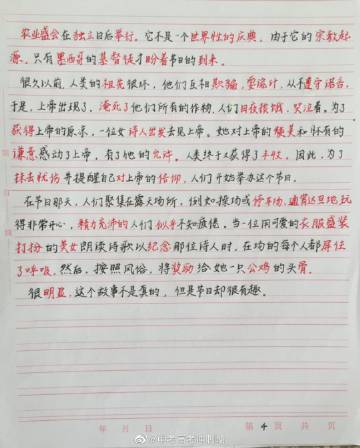 农业盛会在独立日后举行。它不是一个世界性的庆典，由于它的宗教起
源，只有墨西哥的基督徒才盼着节日的到来。
很久以前，人类的祖先很坏，他们互相欺骗，耍诡计，从不遵守诺言，
于是，上帝出现了，淹死了他们所有的作物，人们日夜挨饿，哭泣着。为了
获得上帝的原谅，一位女诗人出发去见上帝。她对上帝的赞美和怀有的
谦意感动了上帝，有了他的允许，人类终于又获得了丰收，因此，为了
抹去忧伤并提醒自己对上帝的信仰，人们开始举办这个节日。
在节日那天，人们聚集在露天场所，例如操场或停车场，通宵达旦地玩
得非常开心，精力充沛的人们似乎不知疲倦。当一位用可爱的衣服盛装
打扮的美女朗读诗歌以纪念那位诗人时，在场的每个人都屏住
了呼吸，然后，按照风俗，将奖励给她一只公鸡的头骨。
很明显，这个故事不是真的，但是节日却很有趣。
年 月 日
第 4 页 共 页